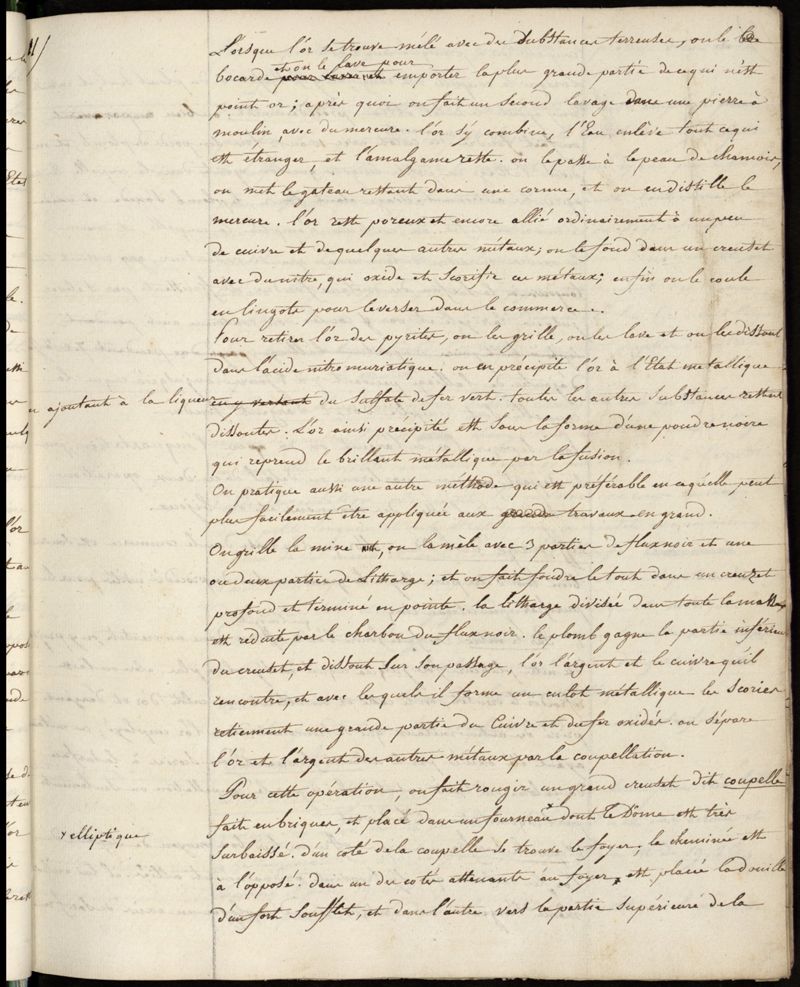 Lorsque l'or se trouve mêlé avec des substances terreuses, on le
bocarde et on le lave pour emporter la plus grande partie de ce qui n'est
point or ; après quoi on fait un second lavage dans une pierre à
moulin avec du mercure. l'or s'y combine, l'Eau enlève tout ce qui
est étranger, et l'amalgame reste. on le passe à la peau de chamois,
on met le gateau restant dans une cornue, et on en distille le
mercure. l'or reste poreux et encore allié ordinairement à un peu
de cuivre et de quelques autres métaux ; on le fond dans un creuset
avec du nitre, qui oxide et scorifie ces métaux ; enfin on le coule
en lingots pour le verser dans le commerce.
Pour retirer l'or des pyrites, on les grille, on les lave et on les dissout
dans l'acide nitromuriatique. on en précipite l'or à l'Etat metallique
ajoutant à la liqueur en y versant du sulfate de fer vert. toutes les autres substances restent
dissoutes. L'or ainsi précipité est sous la forme d'une poudre noire
qui reprend le brillant métallique par la fusion.
On pratique aussi une autre méthode qui est préférable en ce qu'elle peut
plus facilement etre appliquée aux grands travaux en grand.
On grille la mine, on la mêle avec 3 parties de flux noir et une
ou deux parties de Litharge ; et on fait fondre le tout dans un creuzet
profond et terminé en pointe. la litharge divisée dans toute la masse
est réduite par le charbon du flux noir. le plomb gagne la partie inférieure
du creuset, et dissout sur son passage, l'or l'argent et le cuivre qu'il
rencontre, et avec lesquels il forme un culot métallique les scories
retiennent une grande partie du Cuivre et du fer oxidés. on sépare
l'or et l'argent des autres métaux par la coupellation.
Pour cette opération, on fait rougir un grand creuset dit coupelle
faite en briques, et placé dans un fourneau x dont le Dôme est très
x elliptique
surbaissé. d'un coté de la coupelle se trouve le foyer ; la cheminée est
à l'opposé. dans un des cotés attenants au foyer, est placée la douille
d'un fort soufflet, et dans l'autre vers la partie supérieure de la